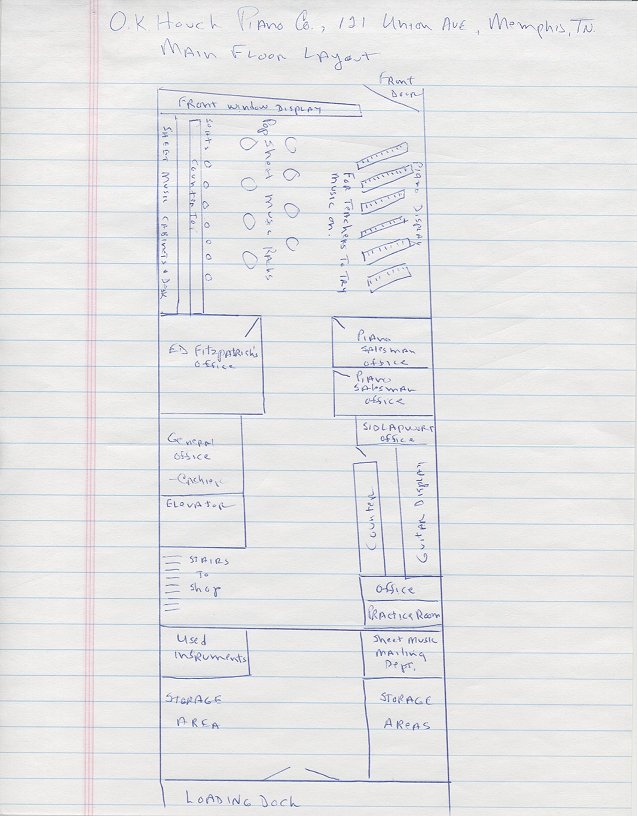 O.K Houck Piano Co., 121 Union Ave, Memphis, TN.
Main Floor Layout
Front
Door
Front Window Display
Sheet Music Cabinets & Desk
Counter Top
Seats
Pop Short Music Racks
For Teachers To Try
Music on.
Piano Display
ED Fitzpatrick's
Office
Piano
Salesman
office
Piano
Salesman
office
General
Office
-Cashier
Elevator
Office
Counter
Guitar Display
Stairs
To
Shop
Office
Practice Room
Used
Instruments
Sheet Music
Mailing
Dept.
Storage
Area
Storage
Areas
Loading Dock